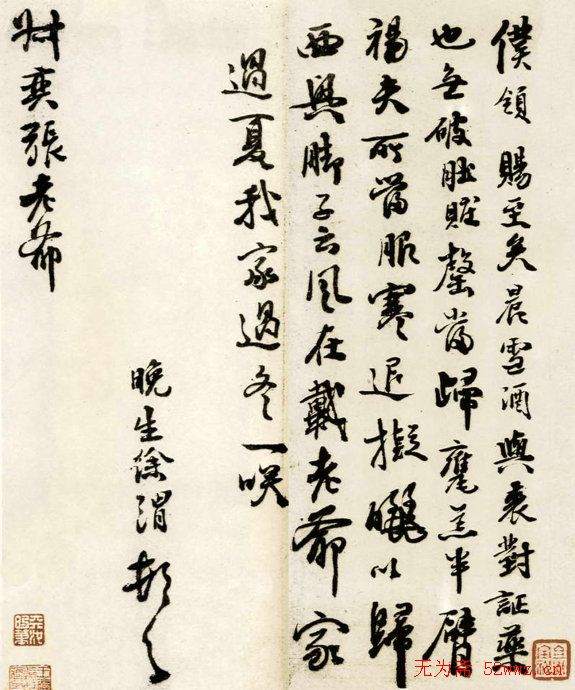 僕領賜至矣晨雪酒與裘對証藥
也無破肚賍罄當歸甕羔半臂
褐夫所常服寒退擬曬以歸
西興脚子云風在戴老爺家
過夏我家過冬一咲
晚生徐渭頓
張老爺
无为斋 52wwz.cn